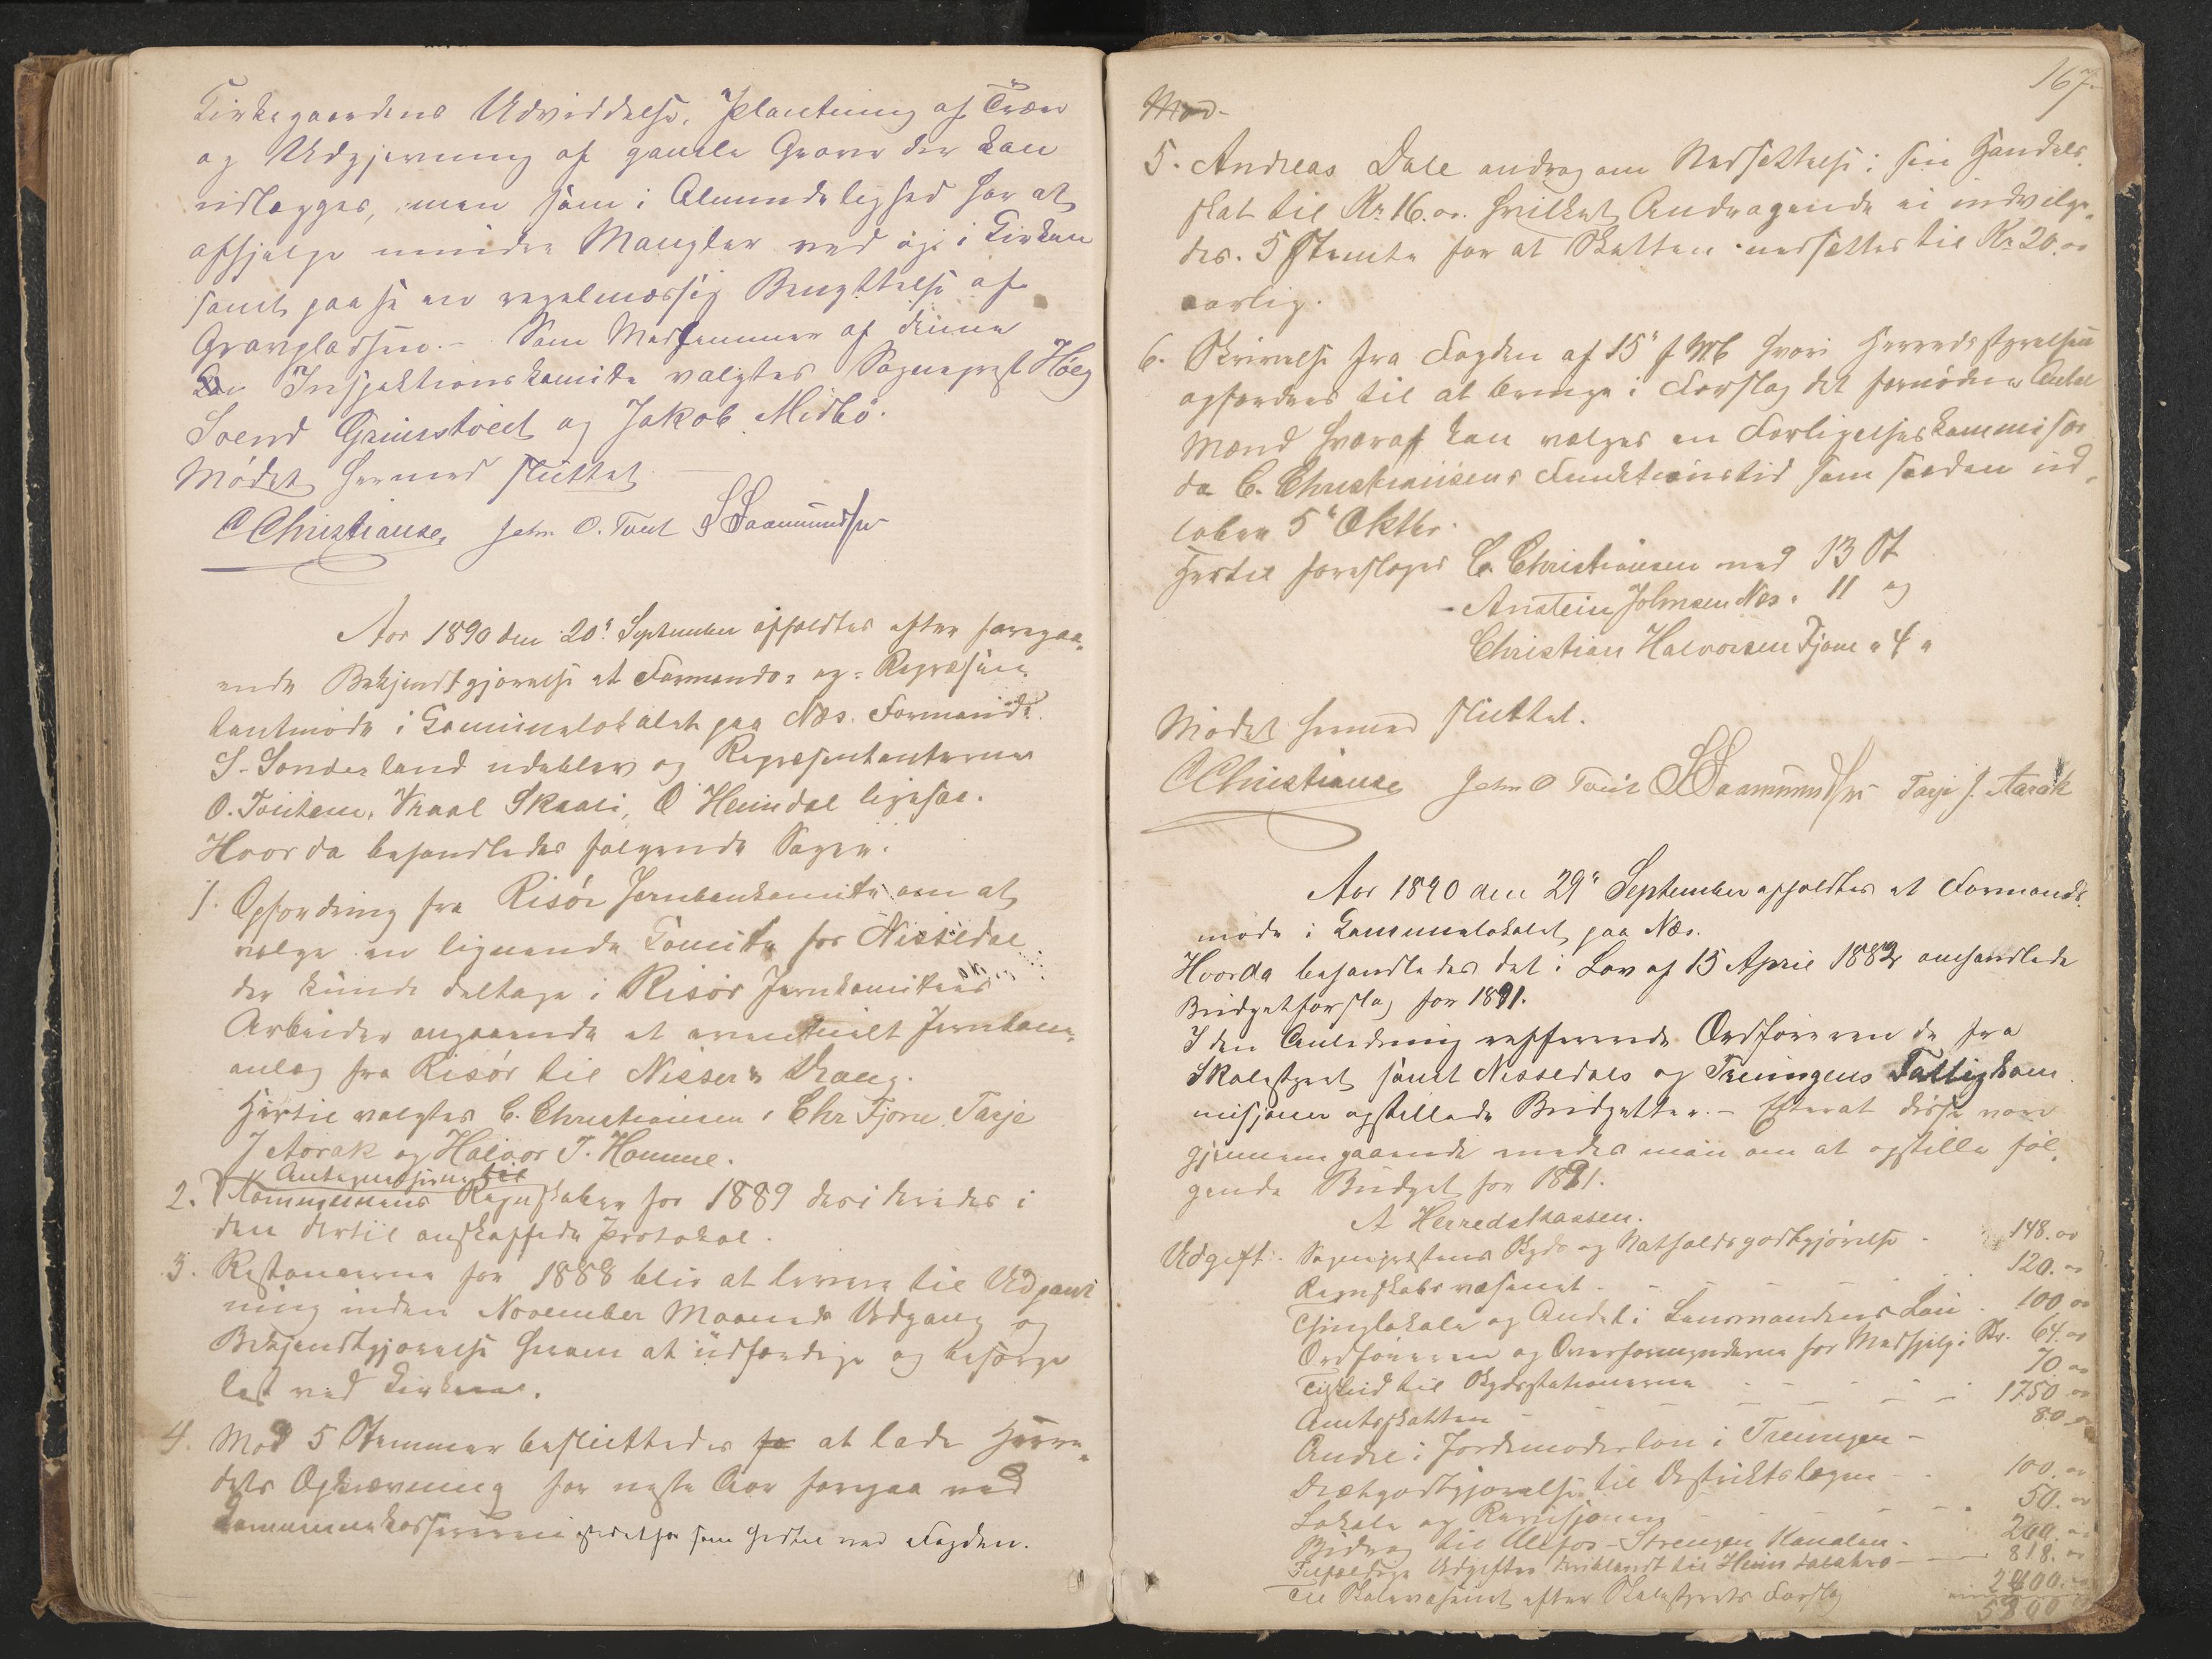 Kirkegaardens Udviddelse, Plantning af Træer
og Udgjævning af gamle Grave der kan
nedlægges, men som i Almindelighed har at
afhjælpe mindre Mangler ved og i Kirken
samt paase en regelmæssig Benyttelse af
Gravpladsen. - Som Medlemmer af denne
Inspektionskomite valgtes Sogneprest Høeg
Svend Grimstveit og Jakob Midbø.
Mødet hermed sluttet
C Christiansen John O. Tveit S Saamundsen
Aar 1890 den 20de September afholdtes efter foregaa-
ende Bekjendtgjørelse et Formands- og Repræsen-
tantmøde i Communelokalet paa Næs. Formand
S. Sonderland udeblev og Repræsentanterne
O. Tveitene, Vraal Skaali, O Heimdal ligesaa.
Hvorda behandledes følgende Sager:
1. Opfordring fra Risør Jernbankomite om at
vælge en lignende Comite for Nissedal
der kunde deltage i Risør Jernkomiteens
Arbeider angaaende et eventuelt Jernbane-
anlæg fra Risør til Nisser Vrang.
Hertil valgtes C. Christiansen, Chr Fjone, Tarje
J Aarak og Halvor T. Homme.
Antegnelserne til
2. Kommunens Regnskaber for 1889 desideredes i
den dertil anskaffede Protokol.
3. Restancerne for 1888 blir at levere til Udpant-
ning inden November Maaneds Udgang og
Bekjendtgjørelse herom at udfærdige og besørge
læst ved Kirkerne.
4. Mod 5 Stemmer besluttedes fo at lade Herre-
dets Opkrævning for neste Aar foregaa ved
Kommunekassereren istedetfor som hidtil ved Fogden.
167.
Mød-
5. Andreas Dale androg om Nedsettelse i sin Handels
skat til Kr 16.00. hvilket Andragende ei indvilge-
des. 5 stemte for at Skatten nedsættes til Kr 20.00
aarlig.
6. Skrivelse fra Fogden af 15de f Mb hvori Herredsstyrelsen
opfordres til at bringe i Forslag det fornødne Antal
Mænd hvoraf kan vælges en Forligelseskommisær
da C. Christiansens Funktionstid som saadan ud-
løber 5te Oktbr.
Hertil foresloges C. Christiansen med 13 St
Anstein Johnsen Næs " 11 og
Christian Halvorsen Fjone " 4 "
Mødet hermed sluttet.
C Christiansen John O Tveit S Saamundsen Tarje J. Aarak
Aar 1890 den 29de September afholdtes et Formands
møde i Kommunelokalet paa Næs.
Hvorda behandledes det i Lov af 15 April 1882 omhandlede
Budgetforslag for 1891.
I den Anledning refererede Ordføreren de fra
Skolestyret samt Nissedals og Treungens Fattigkom
misjoner opstillede Budgetter. - Efterat disse vare
gjennemgaaende enedes man om at opstille føl-
gende Budget for 1891.
A Herredskassen.
Udgift: Sogneprestens Skyds og Natholdsgodtgjørelse - 148.00
Regnskabsvæsenet - 120.00
Thinglokale og Andel i Lensmandens Løn - 100.00
Ordføreren og Overformynderne for Medhjelp: Kr. 64.00
Tilskud til Skydsstationerne - 70.00
Amtsskatten - 1750.00
Andel i Jordemoderløn i Treungen - 80.00
Diætgodtgjørelse til Distriktslægen - 100.00
Lokale og Revisjonen - 50.00
Bidrag til Ulefos-Strengen Kanalen - 200.00
Tilfældige Udgifter deriblandt til - 818.00
Til Skolevæsenet efter Skolestyrets Forslag 2400.00
5800